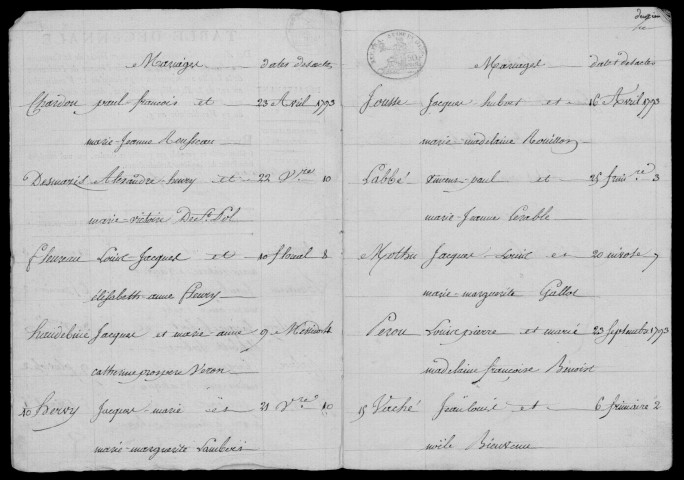 Mariages dates des actes
Chardon paul francois et 23 Avril 1793
marie-Jeanne
Desmaris Alexandre-henry et 22 V.re 10
marie-victoire
Fleureau Louis-Jacques et 10 floreal 8
élisabeth-anne Fleury
heudebine Jacques et marie anne 9 Messidor
catherine prospere Veron
10 hervy Jacques-marie et 21 V.re 10
marie-marguerite Lambois
Mariages dates des actes
Jousse Jacques hubert et 16 Avril 1793
marie-madelaine Rouillon
Labbé vincent-paul et 25 frim.re 3
marie-Jeanne
Mothu Jacques Louis et 20 nivose 7
marie-marguerite Gallot
Perou Louis pierre et marie 23 Septembre 1793
madelaine françoise Benoist
15 Vaché Jean louis et 6 frimaire 2
noële Bienvenu